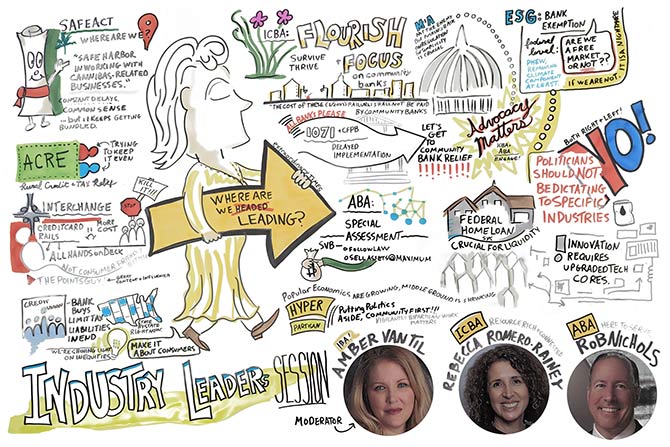 SAFEACT
WHERE ARE WE?
"SAFE HARBOR
IN WORKING WITH
CANNIBAS-RELATED
BUSINESSES."
CONSTANT DELAYS,
COMMON SENSE
...but it KEEPS GETTING
BUNDLED.
ACRE
TRYING
TO KEEP
IT EVEN
Rural Credit + TAX Relief
KILL IT!!!
STOP
INTERCHANGE
CREDIT CARD
RAILS
MORE
COST
ALL HANDS on DECK
NOT CONSUMER FRIENDLY
THE POINTS GUY
CREDW
BANK
BUYS
LIMIT TAX
LIABILITIES
IN END
MAKE IT
ABOUT CONSUMERS
INDUSTRY LEADERS SESSION
WHERE ARE
WE HEADED
LEADING?
ICBA:
FLOURISH
SURVIVE
THRIVE
FOCUS
on community
banks
"THE COST OF THESE FAILURES SHALL NOT BE PAID
BY COMMUNITY BANKS
1071
+CFPB
DELAYED
IMPLEMENTATION
M+A
IS CRUCIAL
LET'S
GET TO
COMMUNITY
BANK RELIEF
!!!!!!!
Advocacy
Matters
ICBA,
ABA
ENGAGE!
ESG: BANK
EXEMPTION
federal
level:
PHEW,
REMOVING
CLIMATE
COMPONENT
AT LEAST.
ARE WE
A FREE
MARKET
OR NOT??
IF WE ARE NOT,
IT IS A NIGHTMARE
BOTH RIGHT + LEFT!
YO!
POLITICIANS
SHOULD NOT
BE DICTATING
TO SPECIFIC
INDUSTRIES
ABA:
SPECIAL
ASSESSMENT
SVB
FOLLOW LAW
SELL ASSETS @ MAXIMUM
FEDERAL
HOME LOAN
CRUCIAL FOR LIQUIDITY
INNOVATION
REQUIRES
UPGRADED TECH
CORES.
Popular Economics ARE GROWING, MIDDLE GROUND IS SHRINKING
HYPER
PARTISAN
Putting Politics
ASIDE, COMMUNITY FIRST!!!
MATTERS
MODERATOR
IBAT
AMBER VAN TIL
ICBA
RESOURCE RICH CONNECTED
REBECCA ROMERO-RAINEY
ABA
HERE TO SERVE
ROB NICHOLS